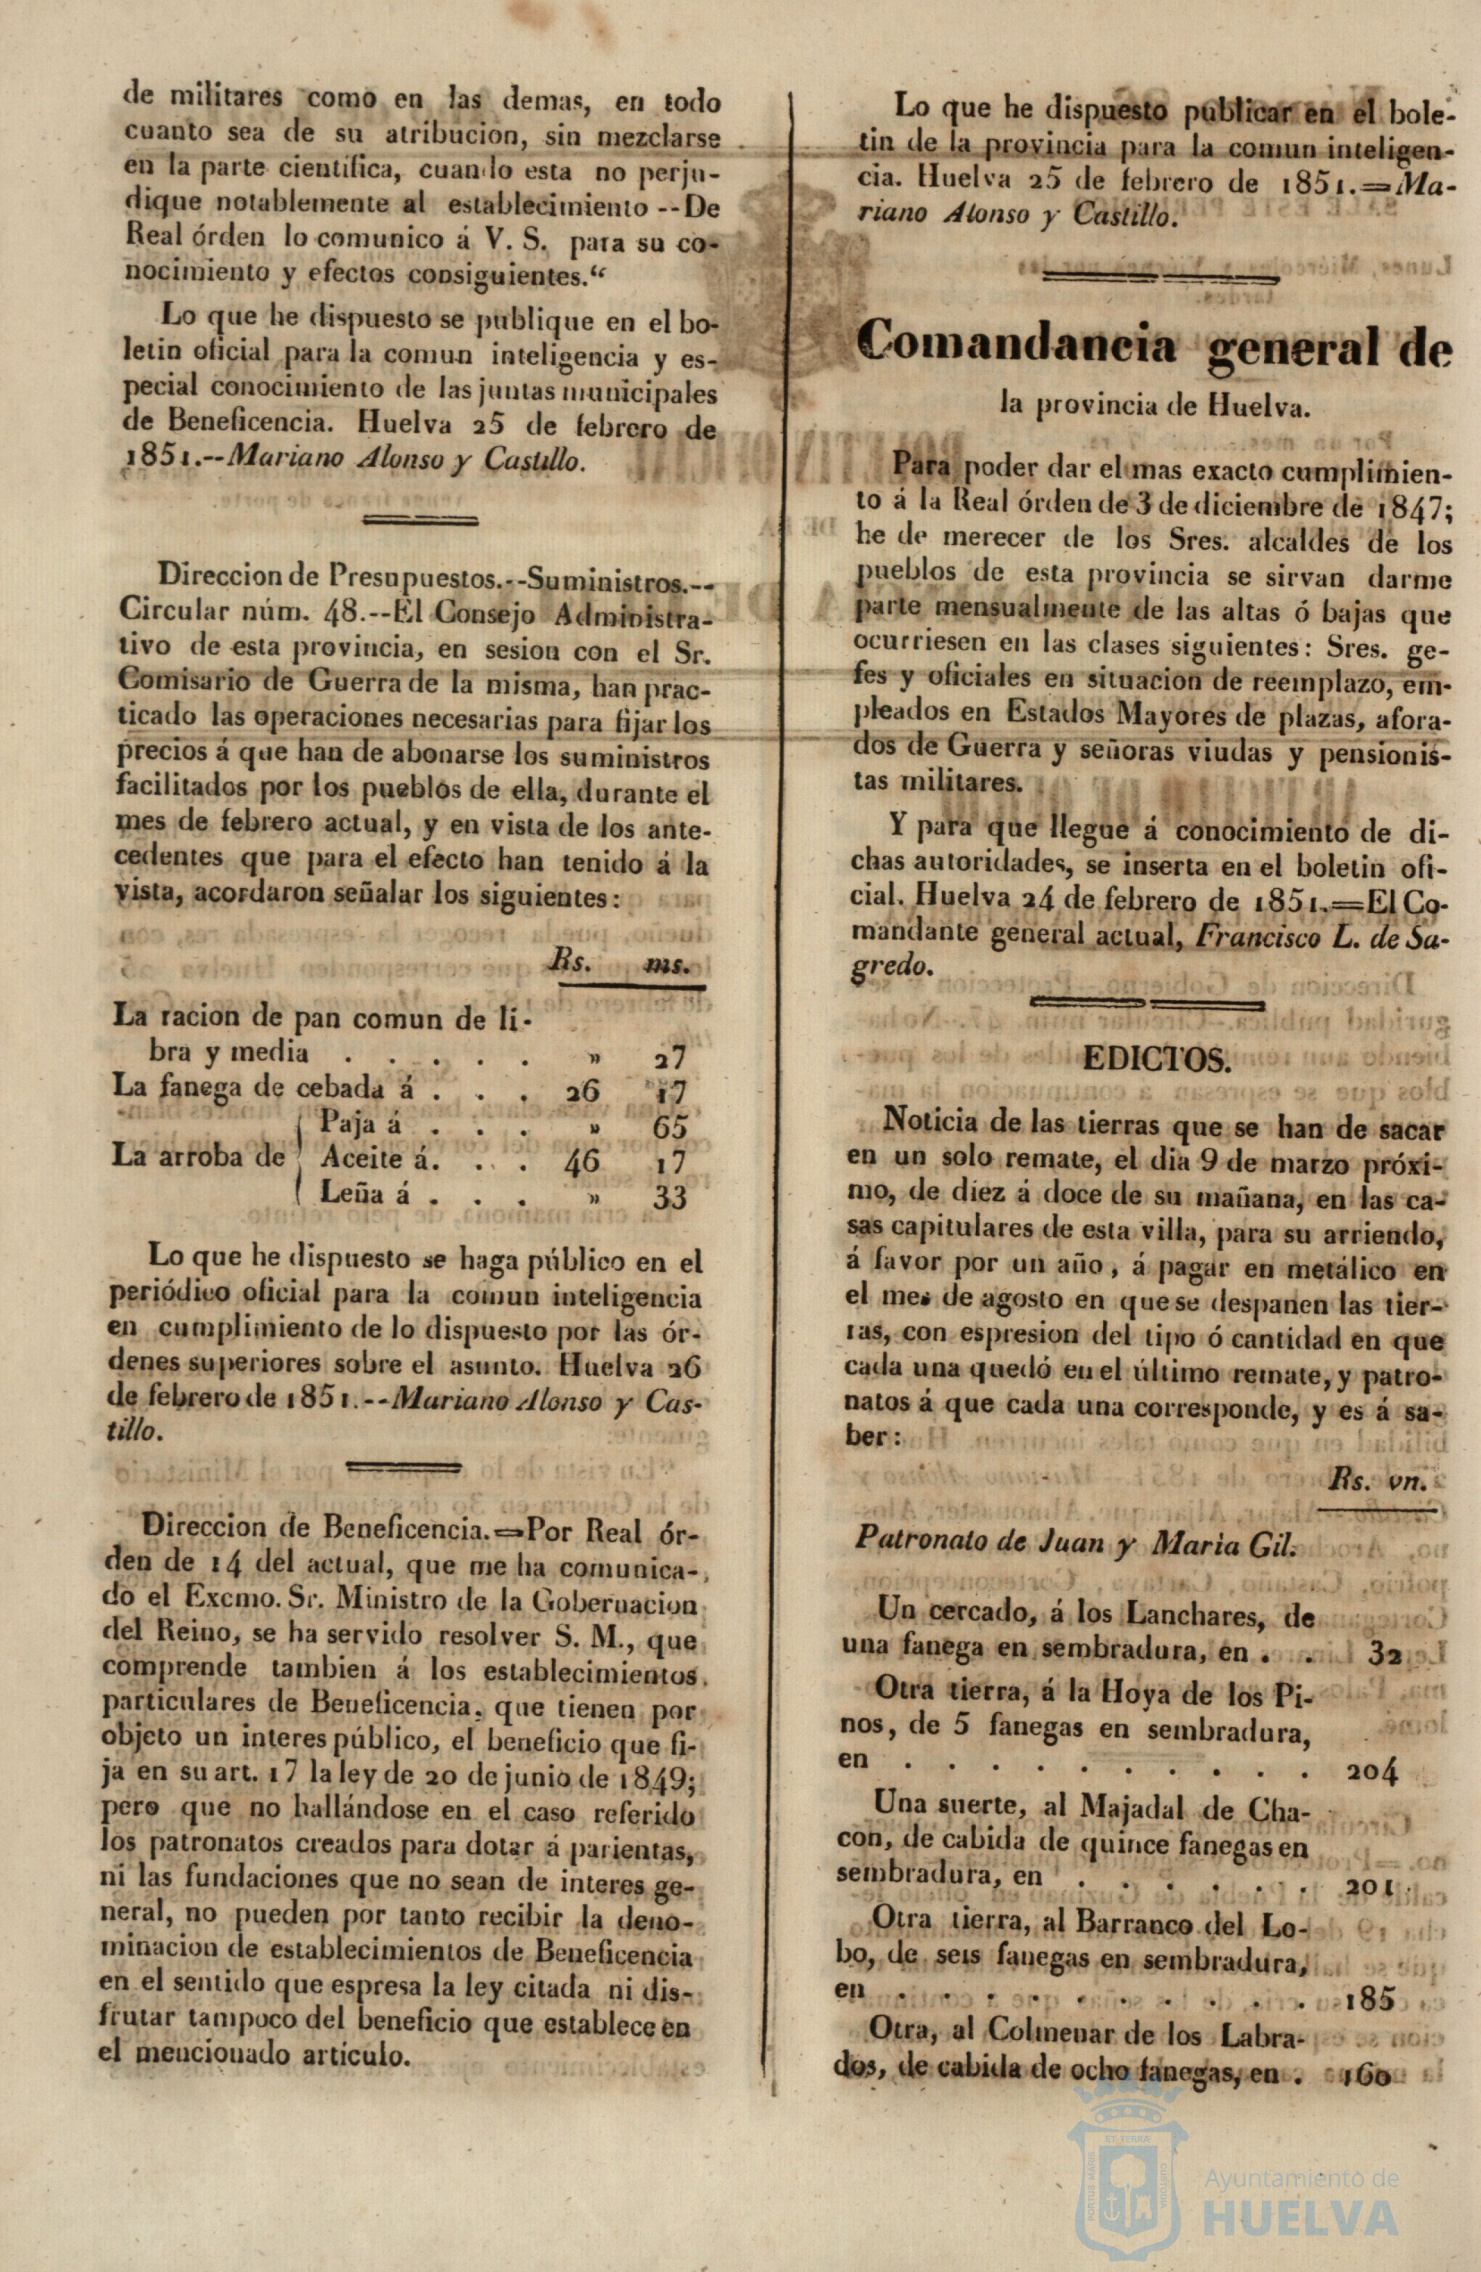 de militares como en las demas, en todo
cuanto sea de su atribucion, sin mezclarse
en la parte científica, cuando esta no perju-
dique notablemente al establecimiento --De
Real órden lo comunico á V. S. para su co-
nocimiento y efectos consiguientes.“
Lo que he dispuesto se publique en el bo-
letin oficial para la comun inteligencia y es-
pecial conocimiento de las juntas municipales
de Beneficencia. Huelva 25 de febrero de
1851.--Mariano Alonso y Castillo.
Direccion de Presupuestos.--Suministros.--
Circular núm. 48.--El Consejo Administra-
tivo de esta provincia, en sesion con el Sr.
Comisario de Guerra de la misma, han prac-
ticado las operaciones necesarias para fijar los
precios á que han de abonarse los suministros
facilitados por los pueblos de ella, durante el
mes de febrero actual, y en vista de los ante-
cedentes que para el efecto han tenido á la
vista, acordaron señalar los siguientes:
Rs. ms.
La racion de pan comun de li-
bra y media . . . . . » 27
La fanega de cebada á . . . 26 17
Paja á . . . » 65
La arroba de Aceite á. . . 46 17
Leña á . . . » 33
Lo que he dispuesto se haga público en el
periódico oficial para la comun inteligencia
en cumplimiento de lo dispuesto por las ór-
denes superiores sobre el asunto. Huelva 26
de febrero de 1851.--Mariano Alonso y Cas-
tillo.
Direccion de Beneficencia.=Por Real ór-
den de 14 del actual, que me ha comunica-
do el Excmo. Sr. Ministro de la Gobernacion
del Reino, se ha servido resolver S. M., que
comprende tambien á los establecimientos
particulares de Beneficencia, que tienen por
objeto un interes público, el beneficio que fi-
ja en su art. 17 la ley de 20 de junio de 1849;
pero que no hallándose en el caso referido
los patronatos creados para dotar á parientas,
ni las fundaciones que no sean de interes ge-
neral, no pueden por tanto recibir la deno-
minacion de establecimientos de Beneficencia
en el sentido que espresa la ley citada ni dis-
frutar tampoco del beneficio que establece en
el mencionado artículo.
Lo que he dispuesto publicar en el bole-
tin de la provincia para la comun inteligen-
cia. Huelva 25 de febrero de 1851.=Ma-
riano Alonso y Castillo.
Comandancia general de
la provincia de Huelva.
Para poder dar el mas exacto cumplimien-
to á la Real órden de 3 de diciembre de 1847;
he de merecer de los Sres. alcaldes de los
pueblos de esta provincia se sirvan darme
parte mensualmente de las altas ó bajas que
ocurriesen en las clases siguientes: Sres. ge-
fes y oficiales en situacion de reemplazo, em-
pleados en Estados Mayores de plazas, afora-
dos de Guerra y señoras viudas y pensionis-
tas militares.
Y para que llegue á conocimiento de di-
chas autoridades, se inserta en el boletin ofi-
cial. Huelva 24 de febrero de 1851.=El Co-
mandante general actual, Francisco L. de Sa-
gredo.
EDICTOS.
Noticia de las tierras que se han de sacar
en un solo remate, el dia 9 de marzo próxi-
mo, de diez á doce de su mañana, en las ca-
sas capitulares de esta villa, para su arriendo,
á favor por un año, á pagar en metálico en
el mes de agosto en que se despanen las tier-
ras, con espresion del tipo ó cantidad en que
cada una quedó en el último remate, y patro-
natos á que cada una corresponde, y es á sa-
ber:
Rs. vn.
Patronato de Juan y Maria Gil.
Un cercado, á los Lanchares, de
una fanega en sembradura, en . . 32
Otra tierra, á la Hoya de los Pi-
nos, de 5 fanegas en sembradura,
en . . . . . . . . . . 204
Una suerte, al Majadal de Cha-
con, de cabida de quince fanegas en
sembradura, en . . . . . . 201
Otra tierra, al Barranco del Lo-
bo, de seis fanegas en sembradura,
en . . . . . . . . . . 185
Otra, al Colmenar de los Labra-
dos, de cabida de ocho fanegas, en . 160
ET TERRÆ
PORTUS MARIS
CUSTODIA
Ayuntamiento de
HUELVA